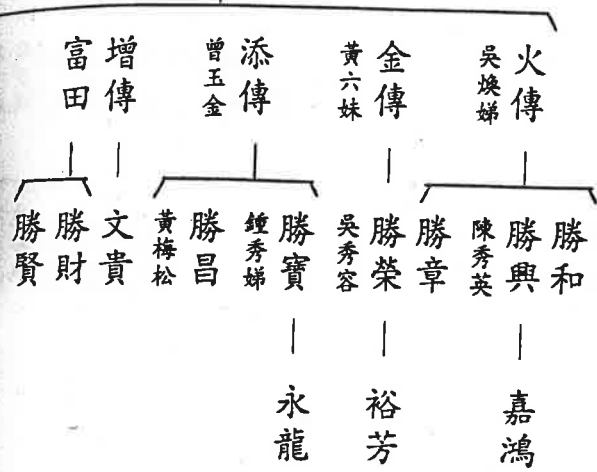 火傳
吳煥娣
金傳
黃六妹
添傳
曾玉金
增傳
富田
勝和
勝興
陳秀英
勝章
勝榮
吳秀容
勝寶
鍾秀娣
勝昌
黃梅松
文貴
勝財
勝賢
嘉鴻
裕芳
永龍